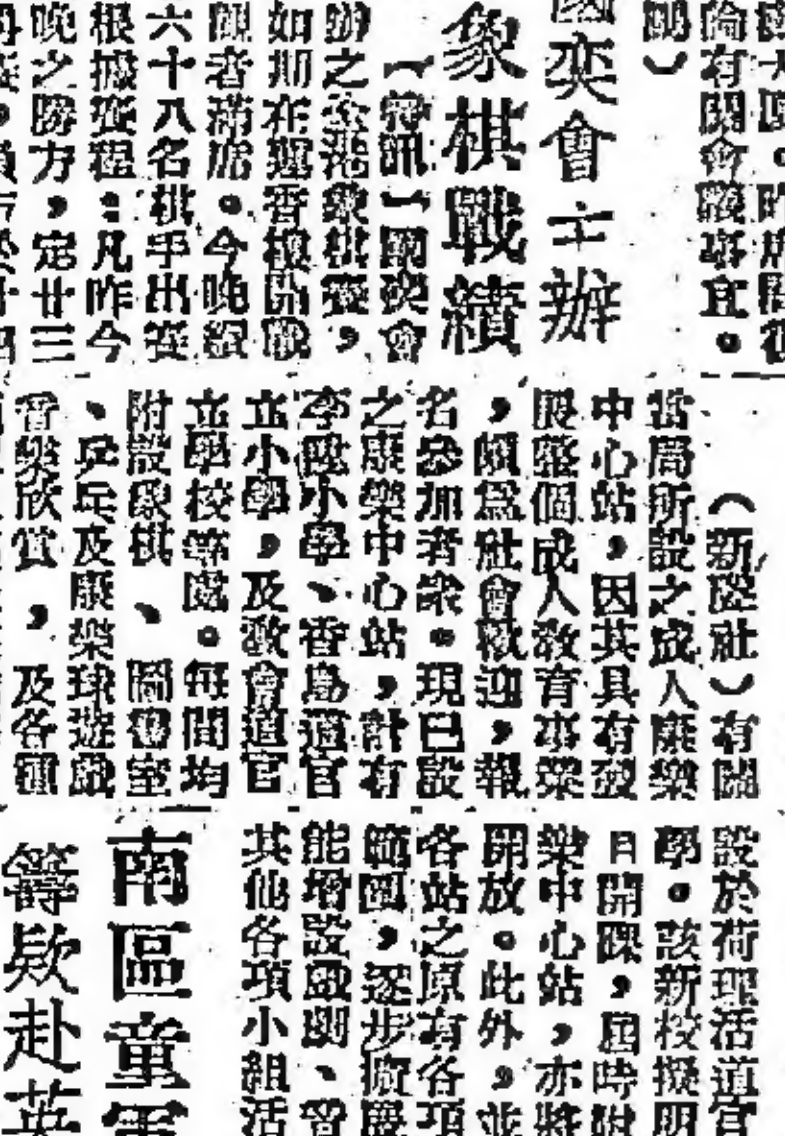 論有關會務事宜。
國奕會主辦
象棋戰績
（特訊）國奕會
辦之全港象棋賽，
如期在蓮香樓開戰
觀者滿席。今晚續
六十八名棋手出賽
根據賽程：凡昨今
晚之勝方，定廿三
（新陸社）有關
當局所設之成人康樂
中心站，因其具有發
展整個成人教育事業
，頗為社會歡迎，報
名參加者眾。現已設
之康樂中心站，計有
李陞小學、香島道官
立小學，及教會道官
立學校等處。每間均
附設象棋、圖書室
、乒乓及康樂球遊戲
音樂欣賞，及各種
設於荷理活道官
學。該新校擬明
日開課，屆時附
樂中心站，亦將
開放。此外，並
各站之原有各項
範圍，逐步擴展
能增設戲劇、音
其他各項小組活
南區童軍
籌欵赴英